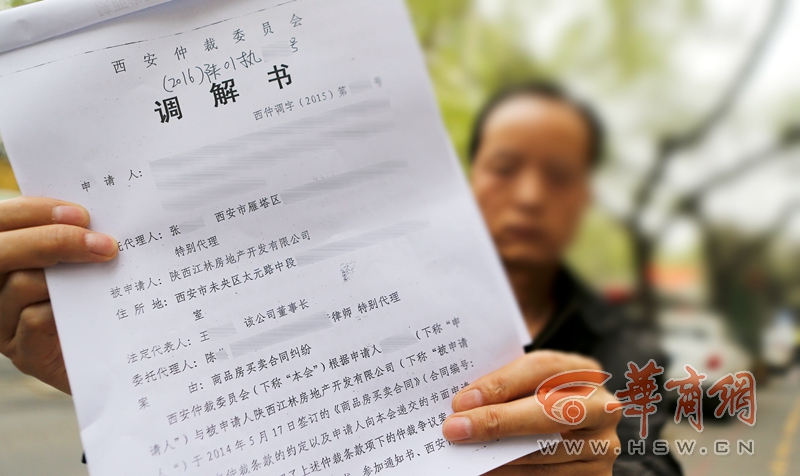 西安仲裁委员会
(2016)陕01执 号
调解书
西仲调字(2015)第 号
申请人:
托代理人:张 西安市雁塔区
特别代理
被申请人:陕西江林房地产开发有限公司
住所地:西安市未央区太元路中段
室
法定代表人:王 该公司董事长
委托代理人:陈 律师 特别代理
案 由:商品房买卖合同纠纷
西安仲裁委员会(下称“本会”)根据申请人 (下称“申
请人”)与被申请人陕西江林房地产开发有限公司(下称“被申请
人”)于2014年5月17日签订的《商品房买卖合同》(合同编号:
仲裁条款的约定以及申请人向本会递交的书面申
了上述仲裁条款项下的仲裁争议案
参加通知书、西安
華商網
WWW.HSW.CN